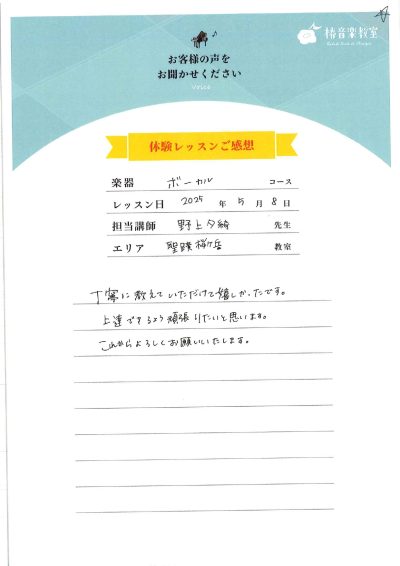 椿音楽教室
お客様の声を
お聞かせください
Voice
体験レッスンご感想
楽器 ボーカル コース
レッスン日 2025 年 5 月 8 日
担当講師 野上夕綺 先生
エリア 聖蹟桜ヶ丘 教室
丁寧に教えていただけて嬉しかったです。
上達できるよう頑張りたいと思います。
これからよろしくお願いいたします。